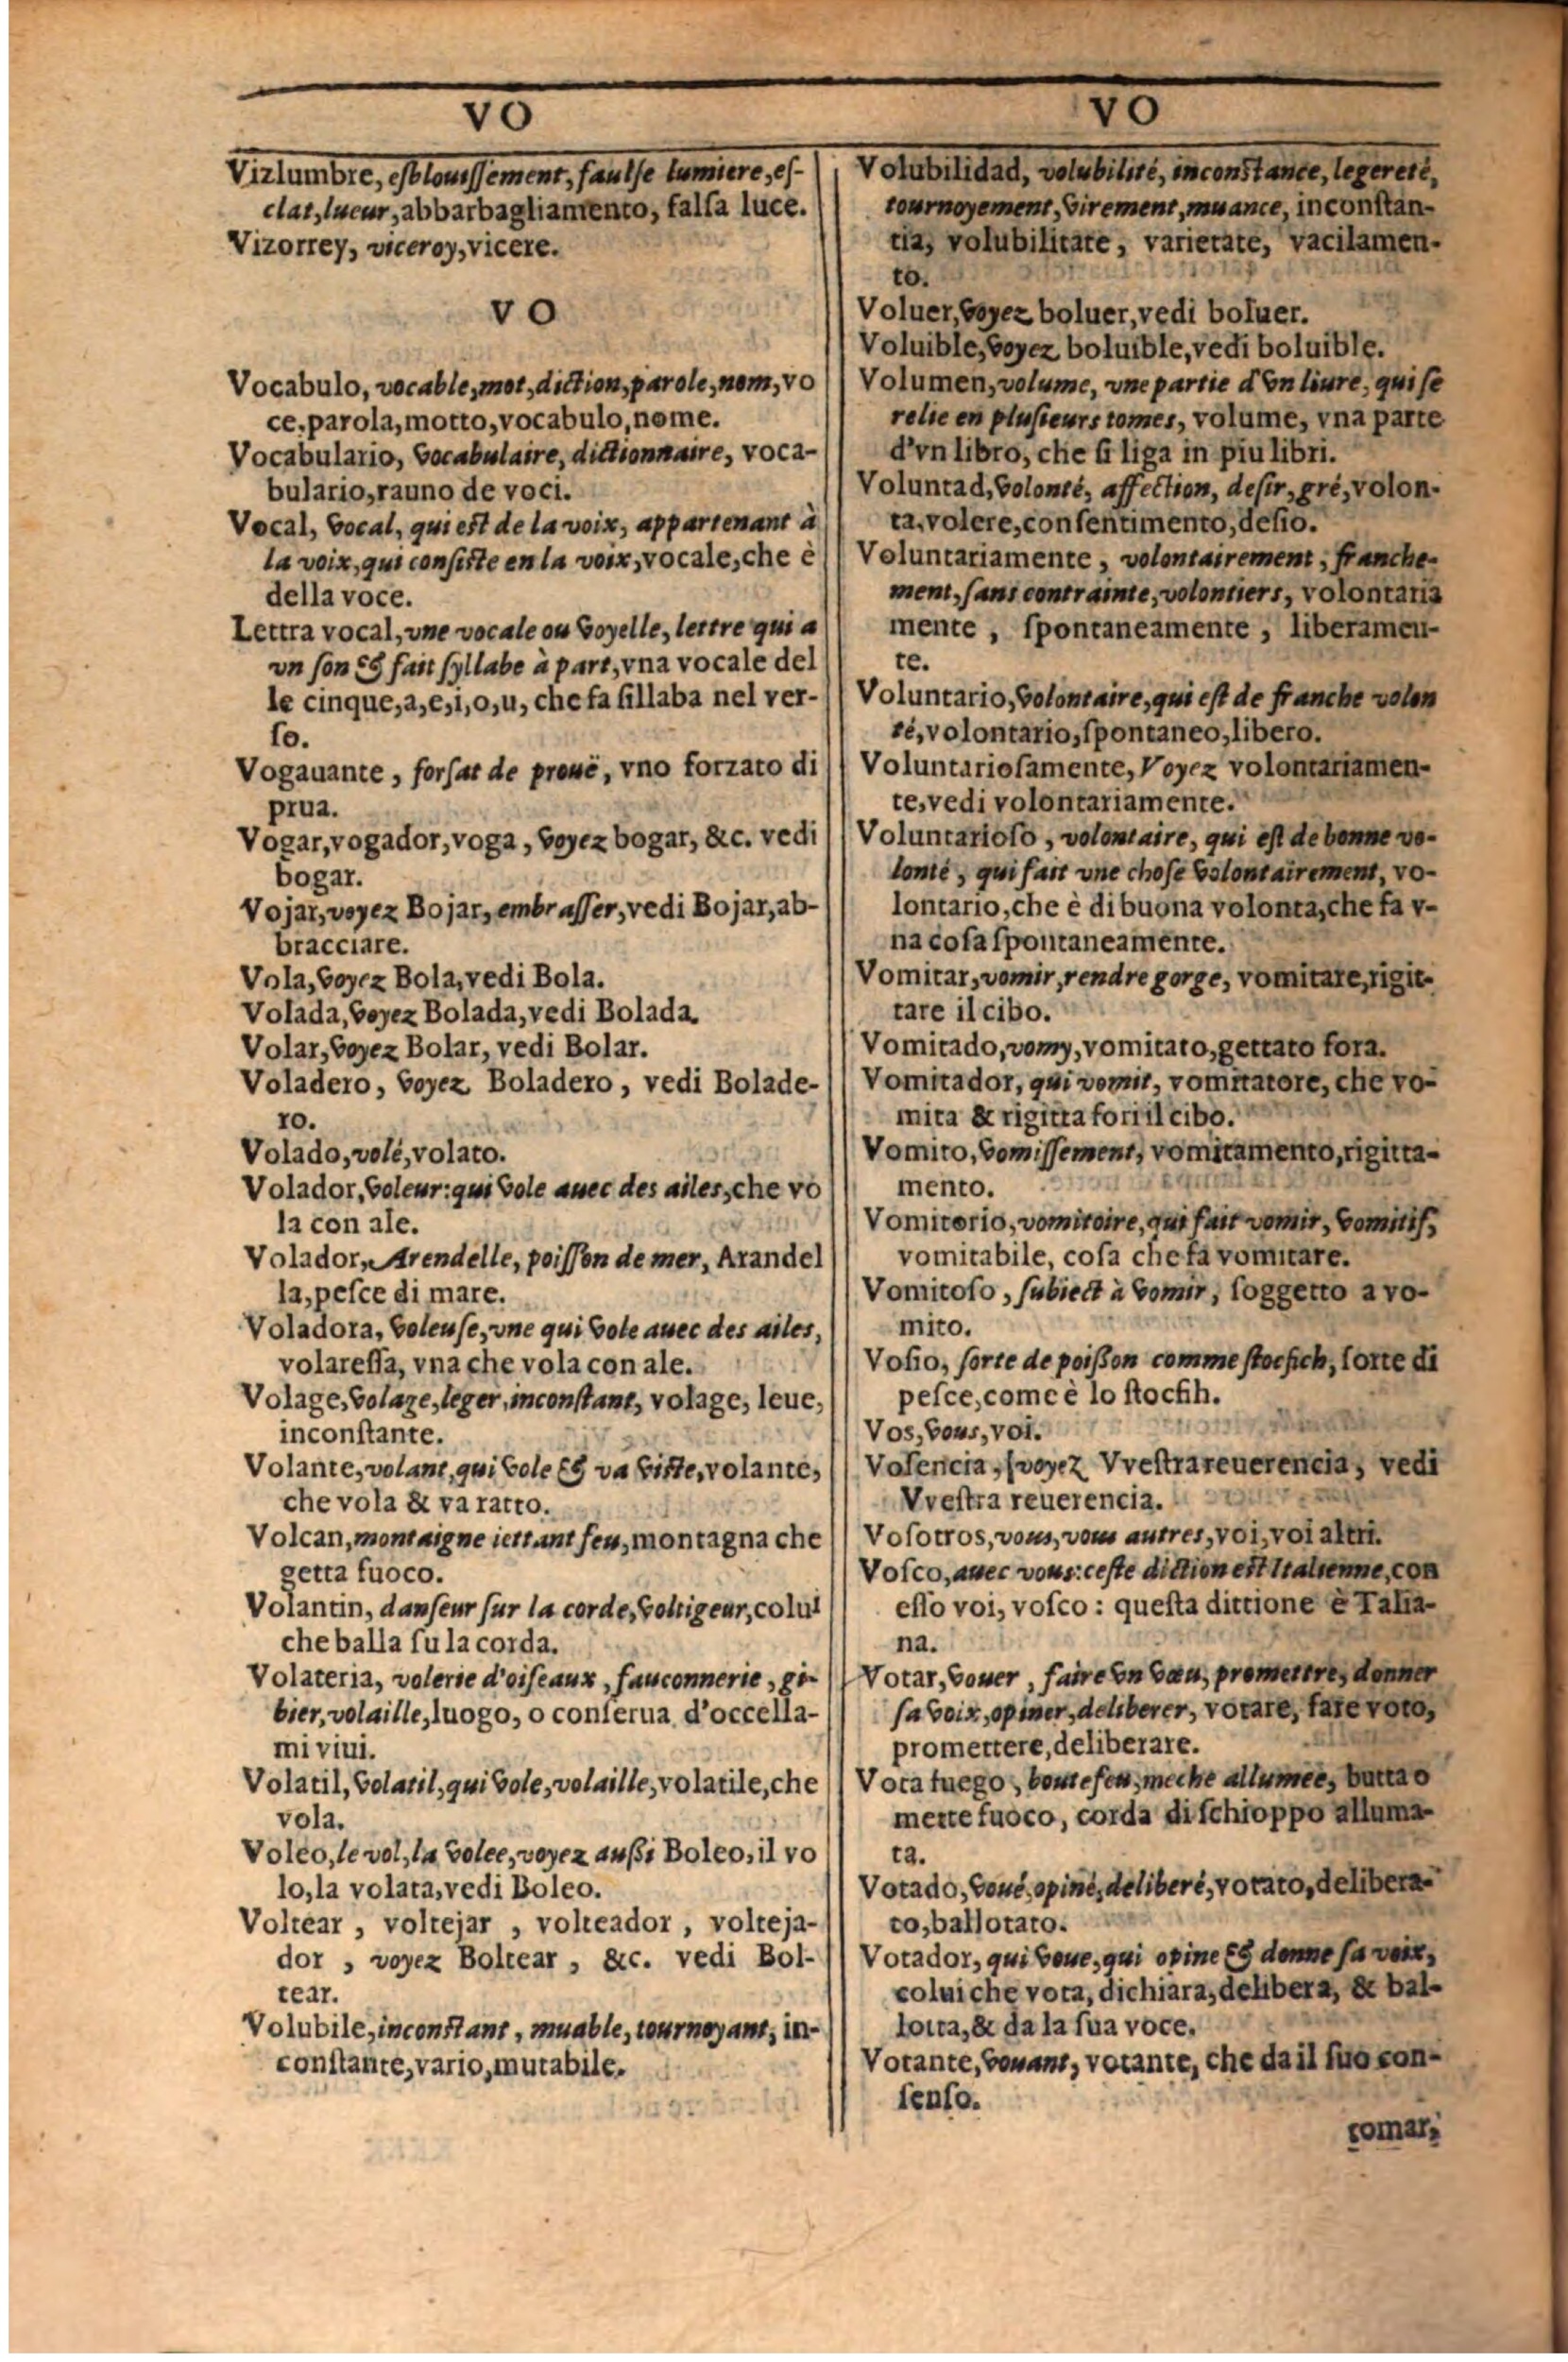 VO
Vizlumbre, esblouissement, faulse lumiere, es-
clat, lueur, abbarbagliamento, falsa luce.
Vizorrey, viceroy, vicere.
VO
Vocabulo, vocable, mot, diction, parole, nom, vo
ce, parola, motto, vocabulo, nome.
Vocabulario, vocabulaire, dictionnaire, voca-
bulario, rauno de voci.
Vocal, vocal, qui est de la voix, appartenant à
la voix, qui consiste en la voix, vocale, che è
della voce.
Lettra vocal, vne vocale ou voyelle, lettre qui a
vn son & fait syllabe à part, vna vocale del
le cinque, a, e, i, o, u, che fa sillaba nel ver-
so.
Vogauante, forsat de prouë, vno forzato di
prua.
Vogar, vogador, voga, voyez bogar, &c. vedi
bogar.
Vojar, voyez Bojar, embrasser, vedi Bojar, ab-
bracciare.
Vola, voyez Bola, vedi Bola.
Volada, voyez Bolada, vedi Bolada.
Volar, voyez Bolar, vedi Bolar.
Voladero, voyez Boladero, vedi Bolade-
ro.
Volado, volé, volato.
Volador, voleur: qui vole auec des ailes, che vo
la con ale.
Volador, Arendelle, poisson de mer, Arandel
la, pesce di mare.
Voladora, voleuse, vne qui vole auec des ailes,
volaressa, vna che vola con ale.
Volage, volage, leger, inconstant, volage, leue,
inconstante.
Volante, volant, qui vole & va viste, volante,
che vola & va ratto.
Volcan, montaigne iettant feu, montagna che
getta fuoco.
Volantin, danseur sur la corde, voltigeur, colui
che balla su la corda.
Volateria, volerie d'oiseaux, fauconnerie, gi-
bier, volaille, luogo, o conserua d'occella-
mi viui.
Volatil, volatil, qui vole, volaille, volatile, che
vola.
Voleo, le vol, la volee, voyez aussi Boleo, il vo
lo, la volata, vedi Boleo.
Voltear, voltejar, volteador, volteja-
dor, voyez Boltear, &c. vedi Bol-
tear.
Volubile, inconstant, muable, tournoyant, in-
constante, vario, mutabile.
VO
Volubilidad, volubilité, inconstance, legereté,
tournoyement, virement, muance, inconstan-
tia, volubilitate, varietate, vacilamen-
to.
Voluer, voyez boluer, vedi boluer.
Voluible, voyez boluible, vedi boluible.
Volumen, volume, vne partie d'vn liure, qui se
relie en plusieurs tomes, volume, vna parte
d'vn libro, che si liga in piu libri.
Voluntad, volonté, affection, desir, gré, volon-
ta, volere, consentimento, desio.
Voluntariamente, volontairement, franche-
ment, sans contrainte, volontiers, volontaria
mente, spontaneamente, liberameu-
te.
Voluntario, volontaire, qui est de franche volon
té, volontario, spontaneo, libero.
Voluntariosamente, Voyez volontariamen-
te, vedi volontariamente.
Voluntarioso, volontaire, qui est de bonne vo-
lonté, qui fait vne chose volontairement, vo-
lontario, che è di buona volonta, che fa v-
na cosa spontaneamente.
Vomitar, vomir, rendre gorge, vomitare, rigit-
tare il cibo.
Vomitado, vomy, vomitato, gettato fora.
Vomitador, qui vomit, vomitatore, che vo-
mita & rigitta fori il cibo.
Vomito, vomissement, vomitamento, rigitta-
mento.
Vomitorio, vomitoire, qui fait vomir, vomitif,
vomitabile, cosa che fa vomitare.
Vomitoso, subiect à vomir, soggetto a vo-
mito.
Vosio, sorte de poisson comme stocfich, sorte di
pesce, come è lo stocfih.
Vos, vous, voi.
Vosencia, voyez Vvestra reuerencia, vedi
Vvestra reuerencia.
Vosotros, vous, vous autres, voi, voi altri.
Vosco, auec vous: ceste diction est Italienne, con
esso voi, vosco: questa dittione è Talia-
na.
Votar, vouer, faire vn vœu, promettre, donner
sa voix, opiner, deliberer, votare, fare voto,
promettere, deliberare.
Vota fuego, boutefeu, meche allumee, butta o
mette fuoco, corda di schioppo alluma-
ta.
Votado, voué, opiné, deliberé, votato, delibera-
to, ballotato.
Votador, qui voue, qui opine & donne sa voix,
colui che vota, dichiara, delibera, & bal-
lotta, & da la sua voce.
Votante, vouant, votante, che da il suo con-
senso.
tomar,